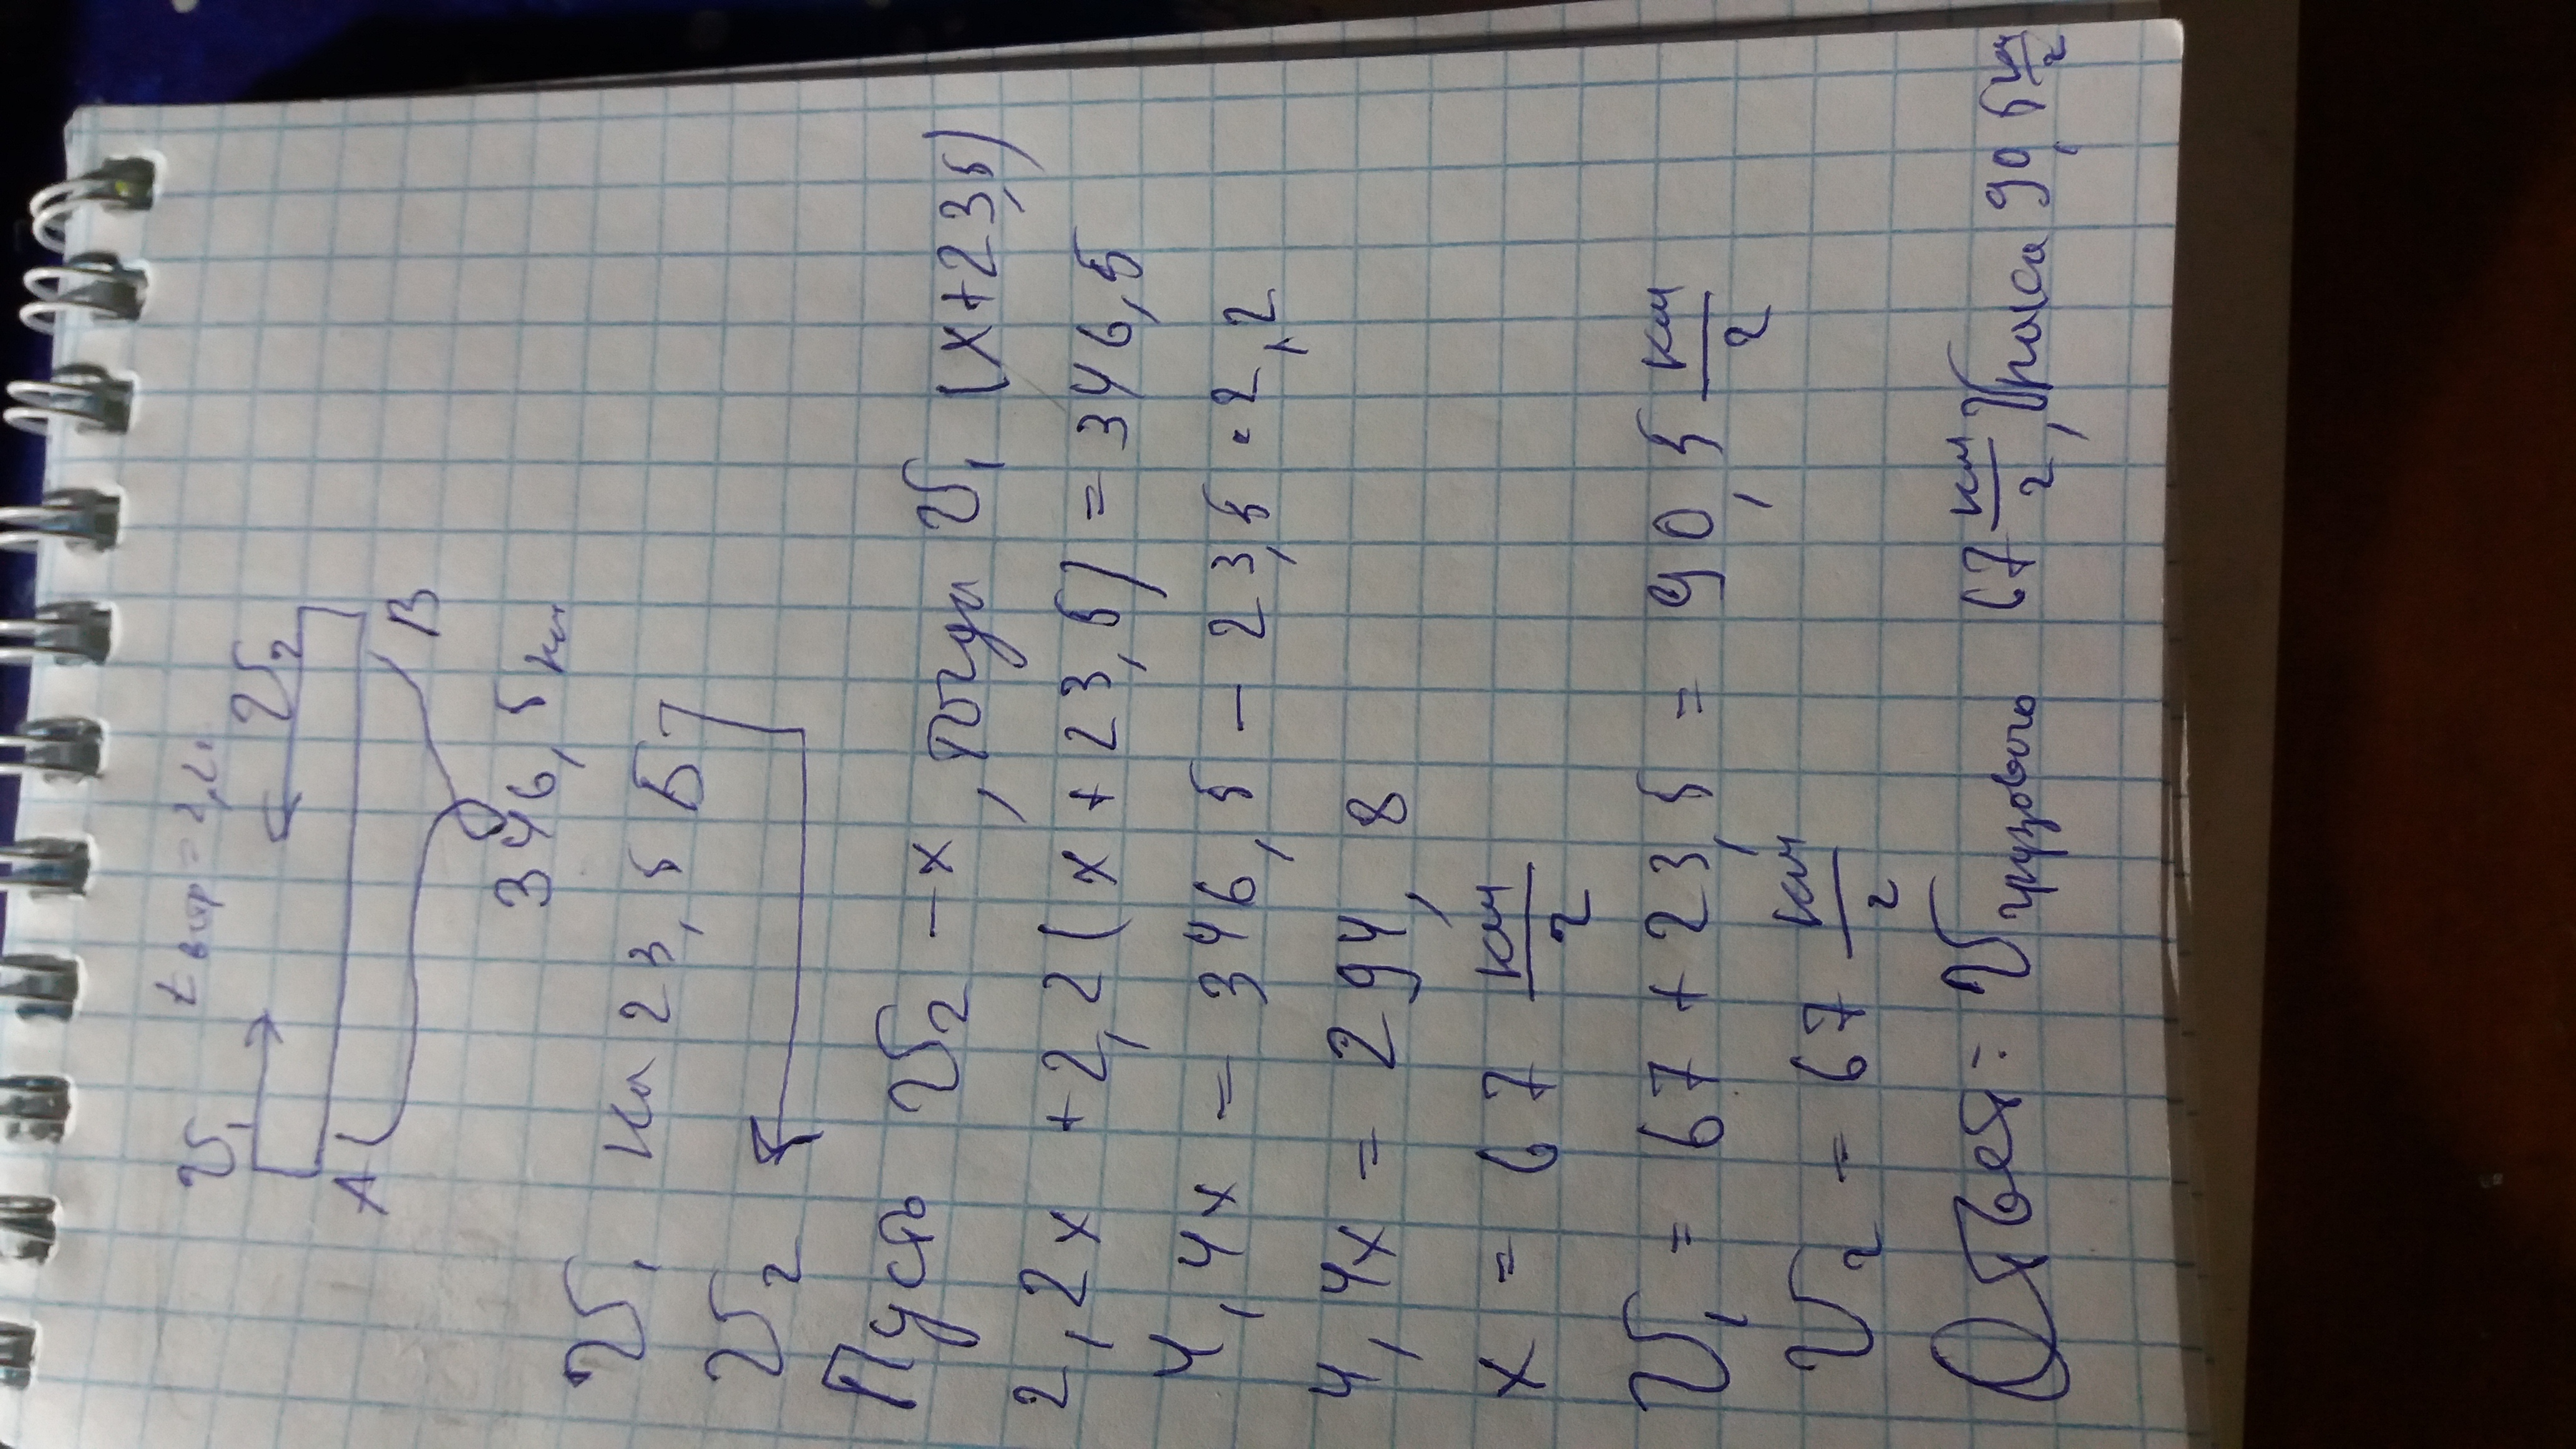 t встр = 2,2 ч
v₁ v₂
A B
346,5 км
v₁ на 23,5 Б
v₂
Пусть v₂ – x, тогда v₁ (x+23,5)
2,2x + 2,2(x + 23,5) = 346,5
4,4x = 346,5 – 23,5 · 2,2
4,4x = 294,8
x = 67 км/ч
v₁ = 67 + 23,5 = 90,5 км/ч
v₂ = 67 км/ч
Ответ: v грузового 67 км/ч, v 90,5 км/ч